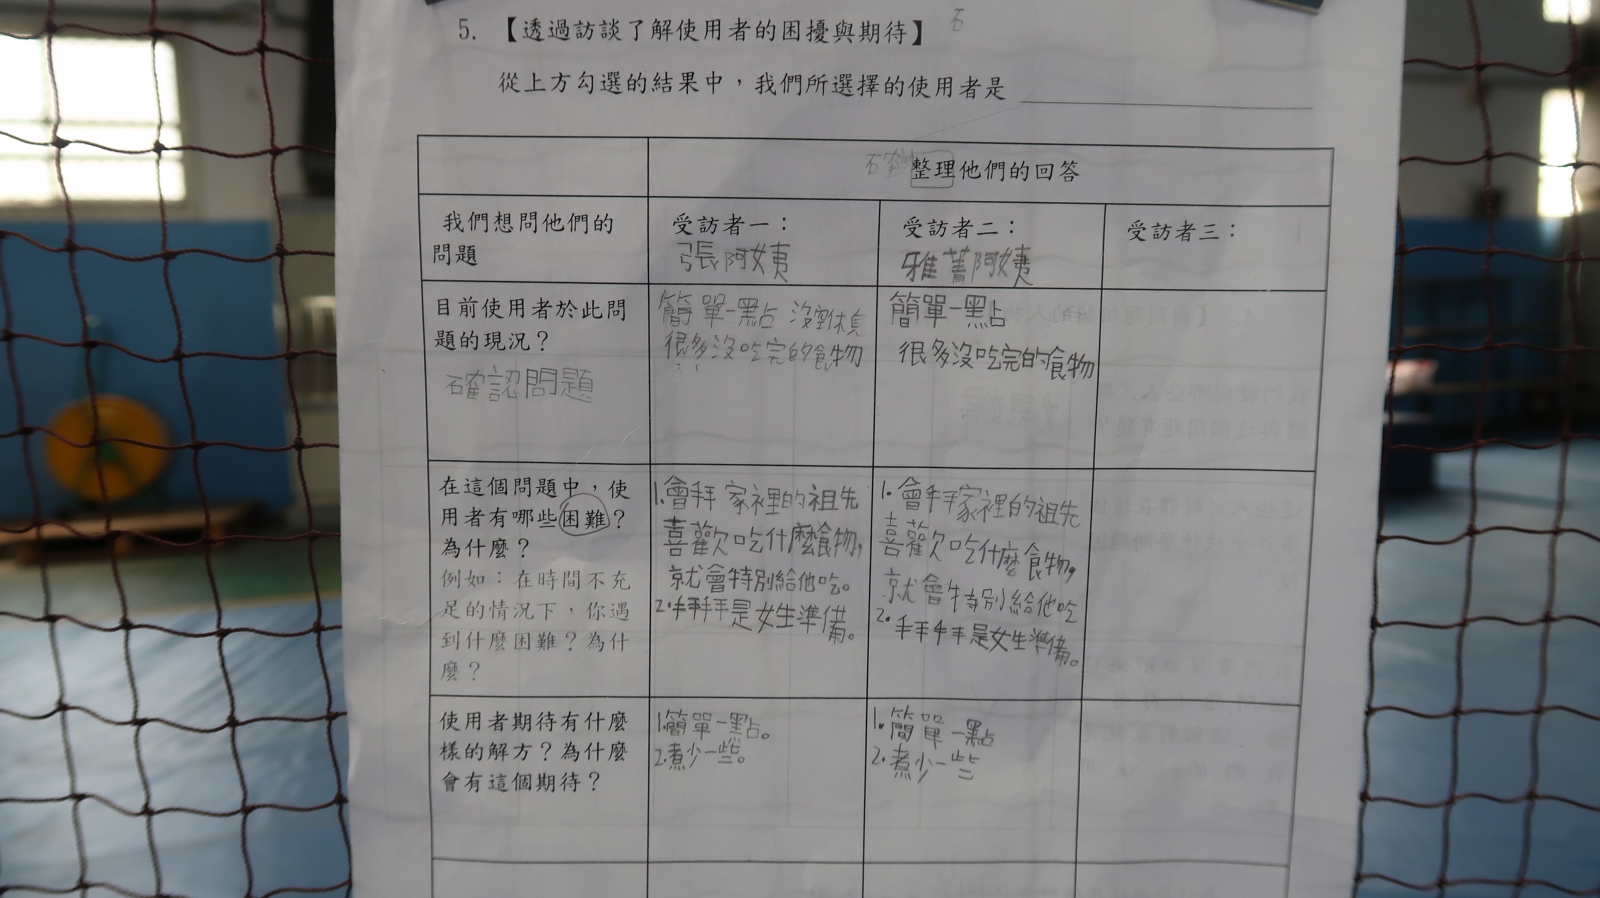 5. 【透過訪談了解使用者的困擾與期待】
石
從上方勾選的結果中，我們所選擇的使用者是
整理他們的回答
我們想問他們的
問題
受訪者一：
張阿姨
受訪者二：
雅菁阿姨
受訪者三：
目前使用者於此問
題的現況？
確認問題
簡單一點 沒空休息
很多沒吃完的食物
簡單一點
很多沒吃完的食物
在這個問題中，使
用者有哪些困難？
為什麼？
例如：在時間不充
足的情況下，你遇
到什麼困難？為什
麼？
1.會拜家裡的祖先
喜歡吃什麼食物，
就會特別給他吃。
2.拜拜是女生準備。
1.會拜家裡的祖先
喜歡吃什麼食物，
就會特別給他吃
2.拜拜是女生準備。
使用者期待有什麼
樣的解方？為什麼
會有這個期待？
1.簡單一點。
2.煮少一些。
1.簡單一點
2.煮少一些